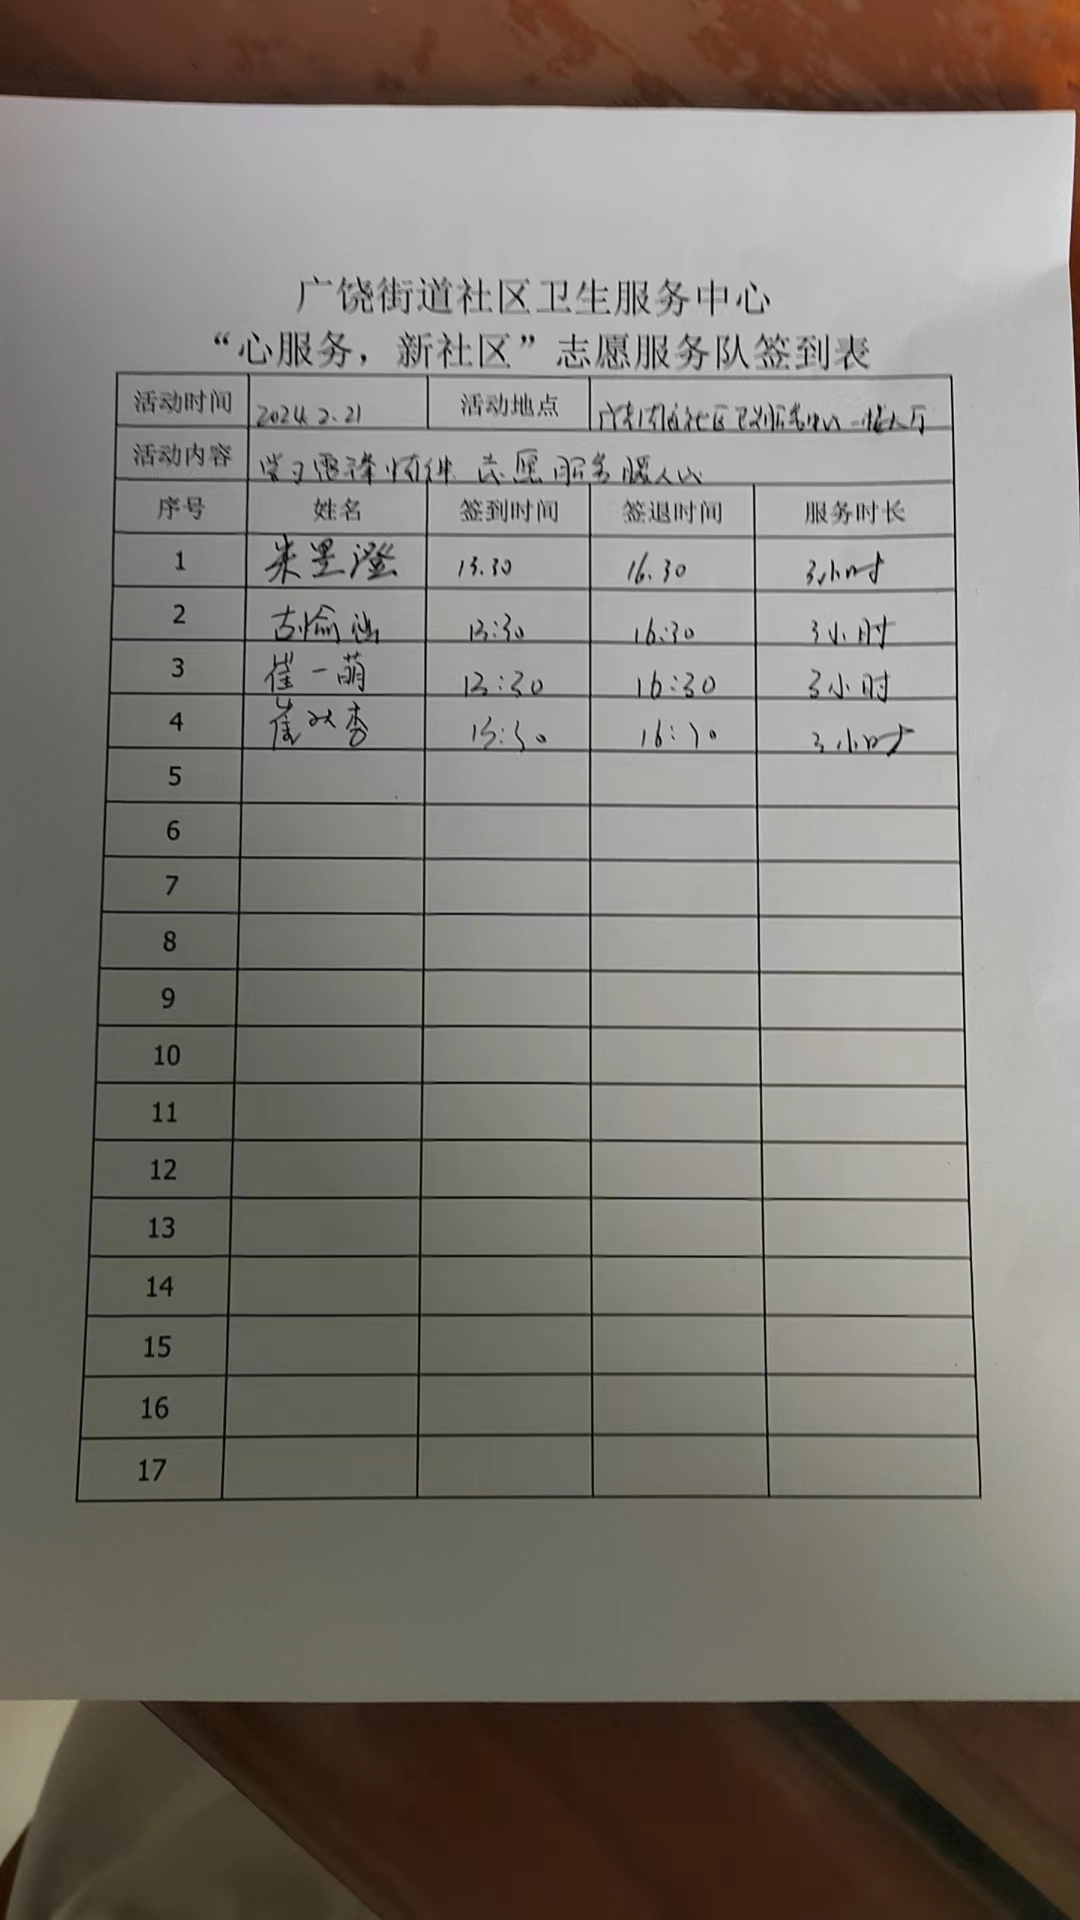 广饶街道社区卫生服务中心
“心服务，新社区”志愿服务队签到表
活动时间 2024.2.21 活动地点 广饶街道社区卫生服务中心一楼大厅
活动内容 学习雷锋精神 志愿服务暖人心
序号 姓名 签到时间 签退时间 服务时长
1 朱昱澄 13.30 16.30 3小时
2 古愉涵 13:30 16:30 3小时
3 崔一萌 13:30 16:30 3小时
4 崔 13:30 16:30 3小时
5
6
7
8
9
10
11
12
13
14
15
16
17